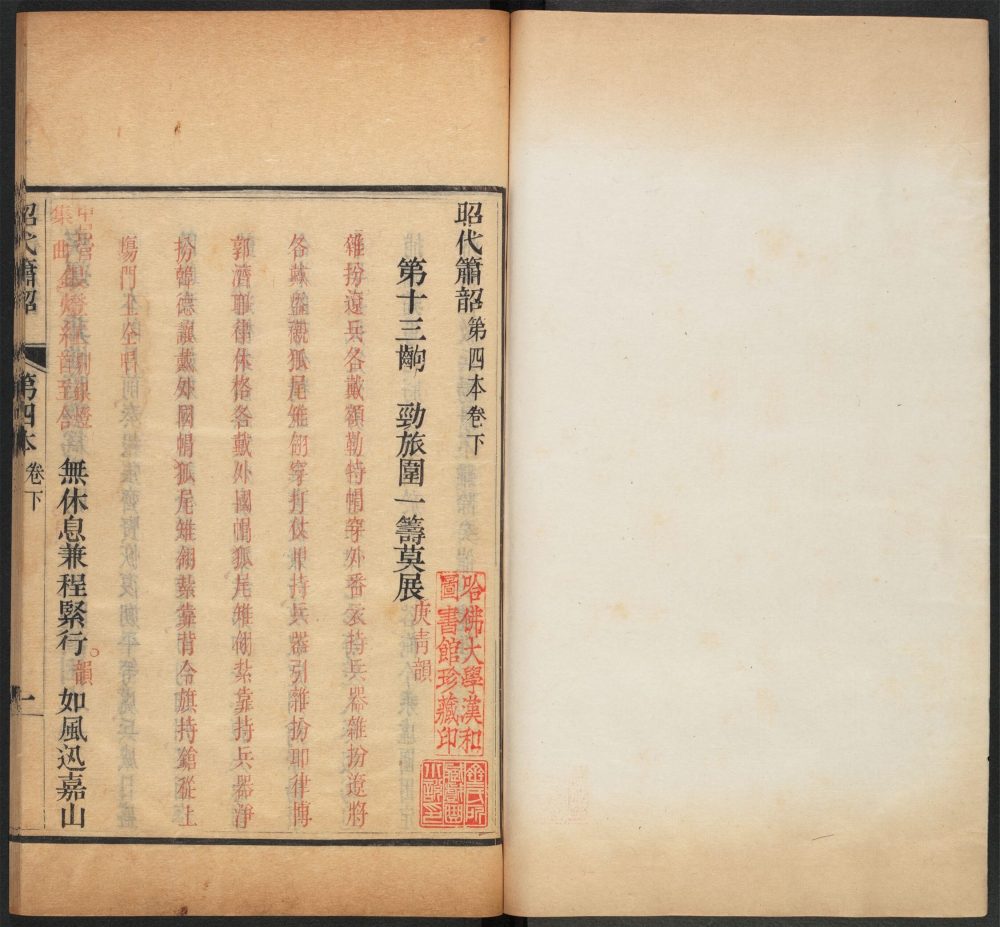 昭代簫韶第四本卷下
第十三齣 勁旅圍一籌莫展庚青韻
雜扮遼兵各戴額勒特帽穿外番衣持兵器雜扮遼將
各戴盔襯狐尾雉翎穿打仗甲持兵器引雜扮耶律博
郭濟耶律休格各戴外國帽狐尾雉翎紮靠持兵器淨
扮韓德讓戴外國帽狐尾雉翎紮靠背令旗持鎗從上
場門上
無休息兼程緊行韻如風迅嘉山
昭代簫韶
第四本
卷下
一
哈佛大學漢和
圖書館珍藏印